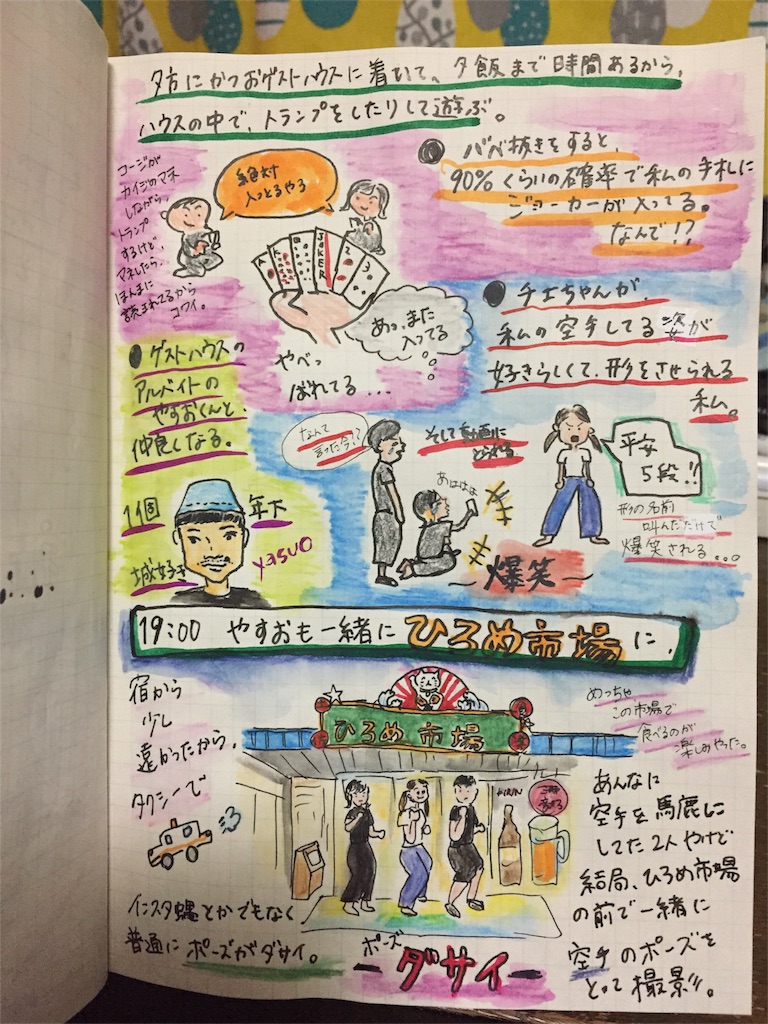 夕方にかつおゲストハウスに着いて。夕飯まで時間あるから、
ハウスの中で、トランプをしたりして遊ぶ。
コージが
カイジのマネ
しながら、
トランプ
するけど、
マネしたら、
ほんまに
読まれてるから
コワイ。
絶対
入っとるやろ
A
JOKER
2
3
あっ、また
入ってる
やべっ
ばれてる...
ババ抜きをすると、
90%くらいの確率で私の手札に
ジョーカーが入ってる。
なんで!?
チエちゃんが、
私の空手してる姿が
好きらしくて、形をさせられる
私。
ゲストハウスの
アルバイトの
やすおくんと、
仲良しなる。
1個
年下
城好き
yasuo
なんて
言った今!?
そして動画に
とられる
あははは
平安
5段!!
形の名前
叫んだだけで
爆笑される...
爆笑
19:00 やすおも一緒にひろめ市場に、
宿から
少し
遠かったから、
タクシーで
ひろめ市場
めっちゃ
この市場で
食べるのが
楽しみやった。
KIRIN
あんなに
空手を馬鹿に
してた2人やけど
結局、ひろめ市場
の前で一緒に
空手のポーズを
とって撮影。
インスタ蠅とかでもなく
普通にポーズがダサイ。
ポーズ
ーダサイー